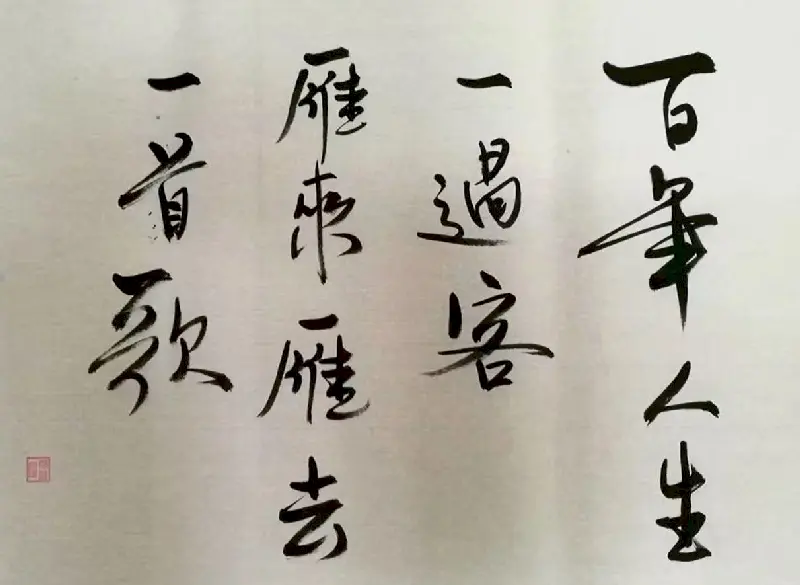 百年人生
一過客
雁來雁去
一首歌